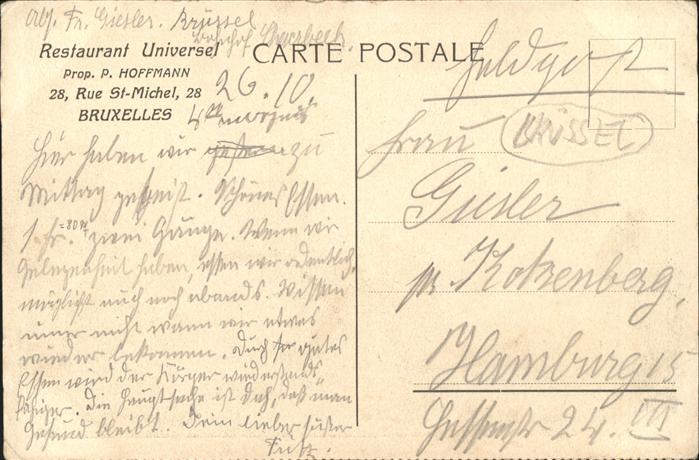 Abs. Fr. Giesler. Brüssel
Bahnhof Schaerbeek
Restaurant Universel
Prop. P. HOFFMANN
28, Rue St-Michel, 28
BRUXELLES
CARTE POSTALE
Feldpost
26.10
4 morgens
BRÜSSEL
Hier haben wir zu
Mittag gespeist. Schönes Essen.
1 fr. = 80 zwei Gänge. Wenn wir
Gelegenheit haben, essen wir ordentlich,
möglichst auch noch abends. Wissen
immer nicht wann wir etwas
wieder bekommen. Durch gutes
Essen wird der Körper widerstands-
fähiger. Die Hauptsache ist doch, daß man
gesund bleibt. Dein lieber
Fritz.
Frau
Giesler
pr Kotzenberg,
Hamburg 15
24. III